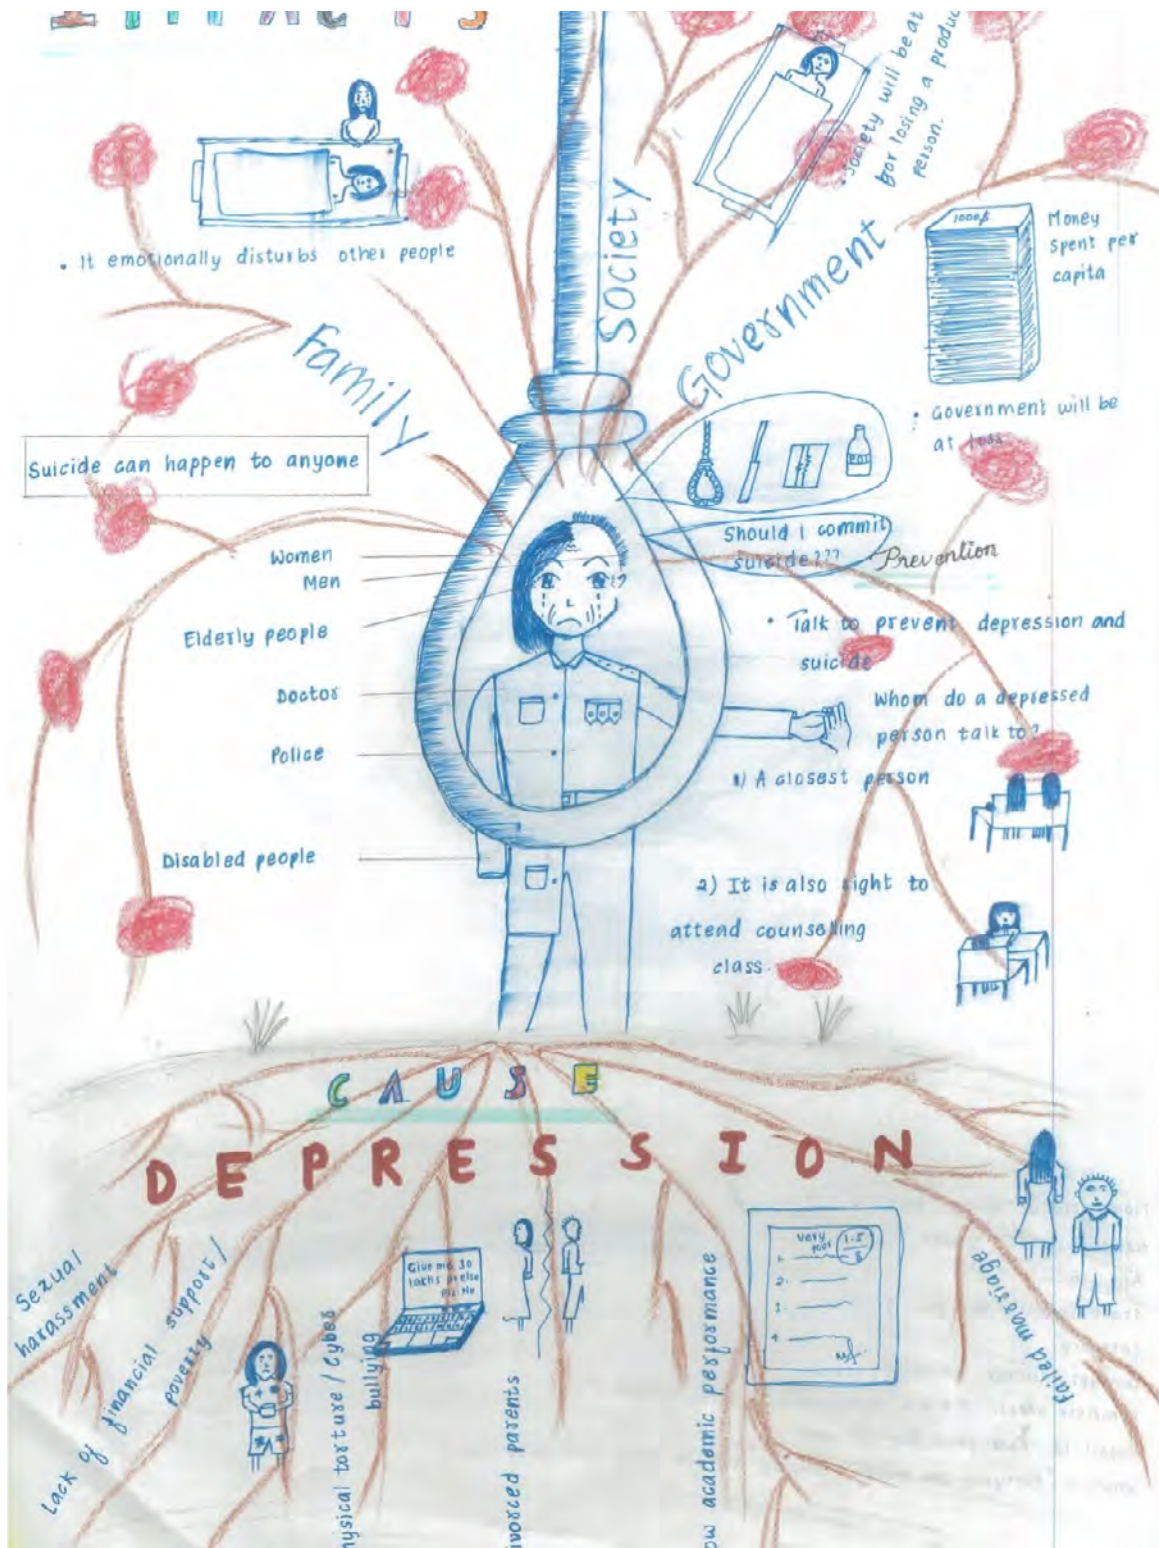 IMPACTS
• It emotionally disturbs other people
Family
Society
Government
• Society will be at
for losing a produc
person.
1000$
Money
spent per
capita
• Government will be
at loss
Suicide can happen to anyone
Women
Men
Elderly people
Doctor
Police
Disabled people
POI
Should I commit
suicide???
Prevention
• Talk to prevent depression and
suicide
Whom do a depressed
person talk to?
1) A closest person
2) It is also right to
attend counselling
class.
CAUSE
DEPRESSION
Sexual
harassment
Lack of financial support /
poverty
hysical torture / Cyber
bullying
Give me 30
lakhs or else
ivorced parents
ow academic performance
very
poor
1.5
5
1.
2.
3.
4.
Failed marriage